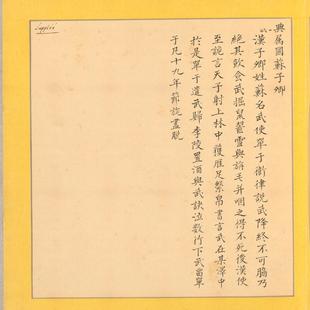 典屬國蘇子卿
漢子卿姓蘇名武使單于衛律說武降終不可脇乃
絕其飲食武掘鼠嚙雪與旃毛并咽之得不死後漢使
至詭言天子射上林中獲雁足繫帛書言武在某澤中
於是單于遣武歸李陵置酒與武訣泣數行下武留單
于凡十九年節旄盡脫